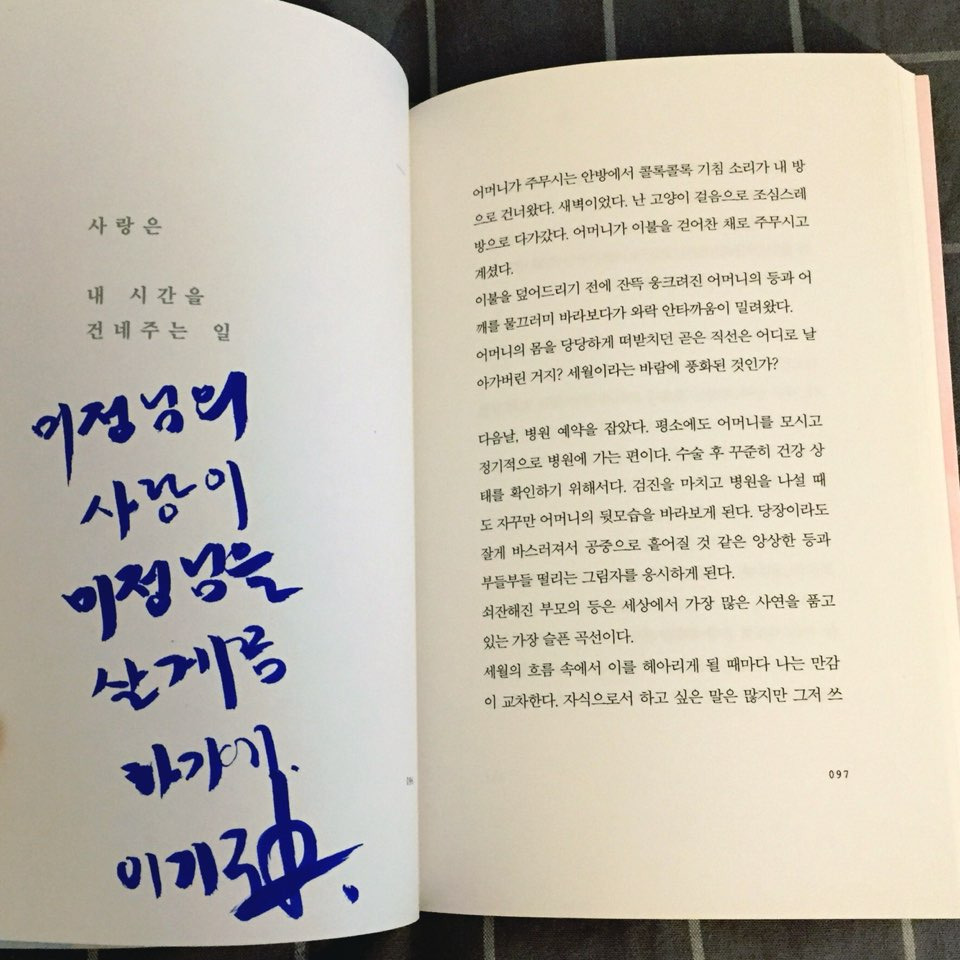 사랑은
내 시간을
건네주는 일
미정님의
사랑이
미정님을
살게 름
작가에.
이기주.
어머니가 주무시는 안방에서 콜록콜록 기침 소리가 내 방
으로 건너왔다. 새벽이었다. 난 고양이 걸음으로 조심스레
방으로 다가갔다. 어머니가 이불을 걷어찬 채로 주무시고
계셨다.
이불을 덮어드리기 전에 잔뜩 웅크려진 어머니의 등과 어
깨를 물끄러미 바라보다가 와락 안타까움이 밀려왔다.
어머니의 몸을 당당하게 떠받치던 곧은 직선은 어디로 날
아가버린 거지? 세월이라는 바람에 풍화된 것인가?
다음날, 병원 예약을 잡았다. 평소에도 어머니를 모시고
정기적으로 병원에 가는 편이다. 수술 후 꾸준히 건강 상
태를 확인하기 위해서다. 검진을 마치고 병원을 나설 때
도 자꾸만 어머니의 뒷모습을 바라보게 된다. 당장이라도
잘게 바스러져서 공중으로 흩어질 것 같은 앙상한 등과
부들부들 떨리는 그림자를 응시하게 된다.
쇠잔해진 부모의 등은 세상에서 가장 많은 사연을 품고
있는 가장 슬픈 곡선이다.
세월의 흐름 속에서 이를 헤아리게 될 때마다 나는 만감
이 교차한다. 자식으로서 하고 싶은 말은 많지만 그저 쓰
097